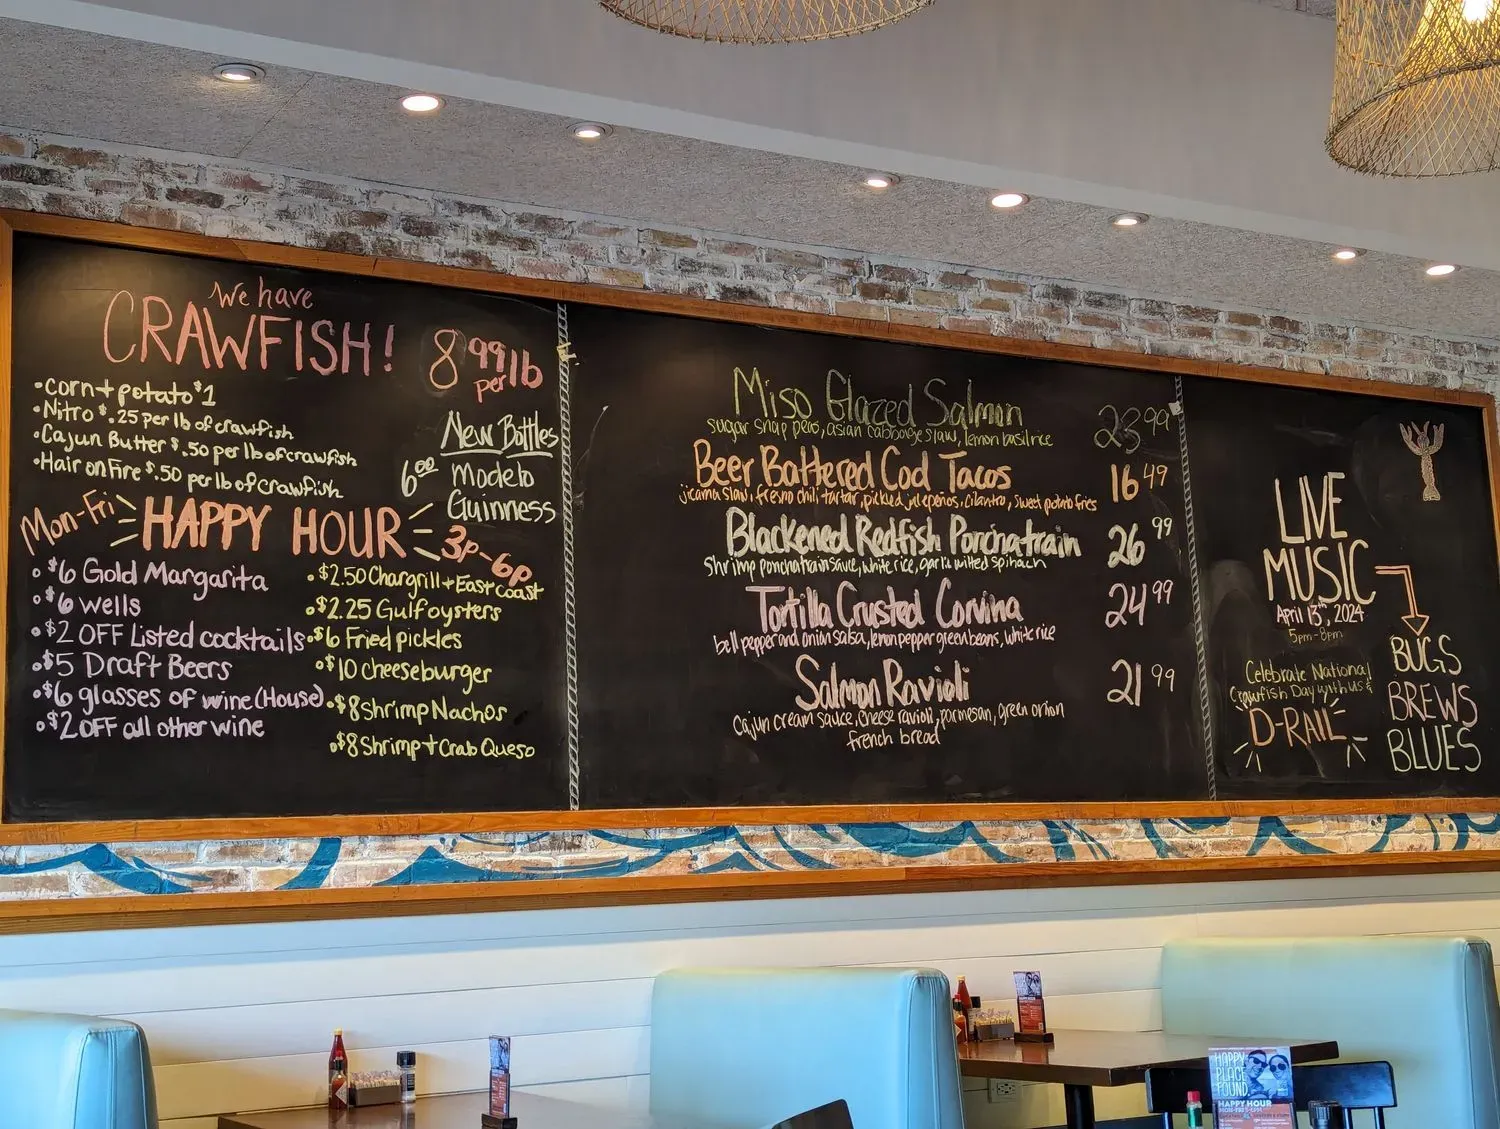 We have
CRAWFISH!
8 99 per lb
•corn + potato $1
•Nitro $.25 per lb of crawfish
•Cajun Butter $.50 per lb of crawfish
•Hair on Fire $.50 per lb of crawfish
New Bottles
6.00 Modelo
Guinness
Mon-Fri HAPPY HOUR 3p-6p
•$6 Gold Margarita
•$6 wells
•$2 OFF Listed cocktails
•$5 Draft Beers
•$6 glasses of wine (House)
•$2 OFF all other wine
•$2.50 Chargrill + East coast
•$2.25 Gulf oysters
•$6 Fried pickles
•$10 cheeseburger
•$8 Shrimp Nachos
•$8 Shrimp + Crab Queso
Miso Glazed Salmon 23 99
sugar snap peas, asian cabbage slaw, lemon basil rice
Beer Battered Cod Tacos 16 49
jicama slaw, fresno chili tartar, pickled jalepeños, cilantro, sweet potato fries
Blackened Redfish Ponchatrain 26 99
shrimp ponchatrain sauce, white rice, garlic wilted spinach
Tortilla Crusted Corvina 24 99
bell pepper and onion salsa, lemon pepper green beans, white rice
Salmon Ravioli 21 99
cajun cream sauce, cheese ravioli, parmesan, green onion
french bread
LIVE
MUSIC
April 13th, 2024
5pm-8pm
Celebrate National
Crawfish Day with us &
D-RAIL
BUGS
BREWS
BLUES
HAPPY
PLACE
FOUND.
HAPPY HOUR
MON-FRI 3-6PM